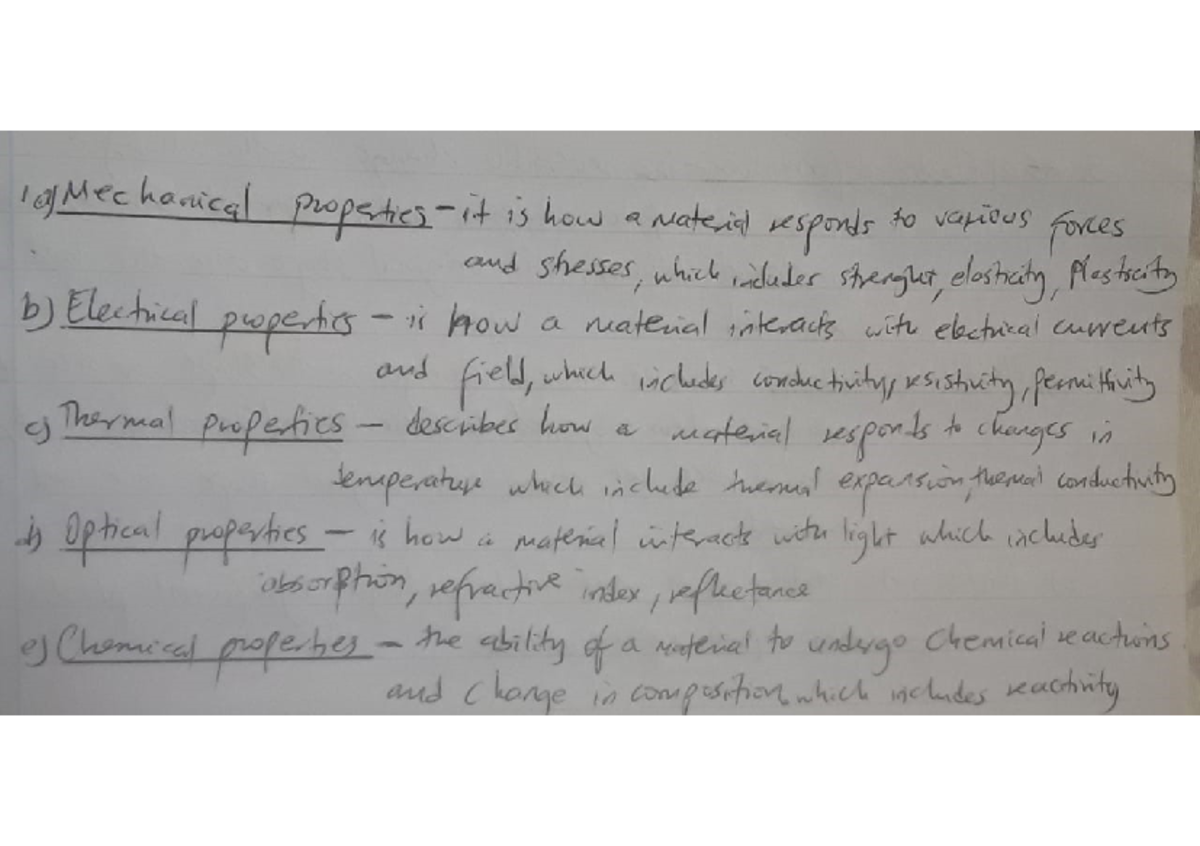 1a) Mechanical properties - it is how a material responds to various forces
and stresses, which includes strenght, elasticity, Plasticity
b) Electrical properties - is how a material interacts with electrical currents
and field, which includes conductivity, resistivity, permittivity
c) Thermal properties - describes how a material responds to changes in
temperature which include thermal expansion, thermal conductivity
d) Optical properties - is how a material interacts with light which includes
absorption, refractive index, reflectance
e) Chemical properties - the ability of a material to undergo Chemical reactions
and change in composition which includes reactivity